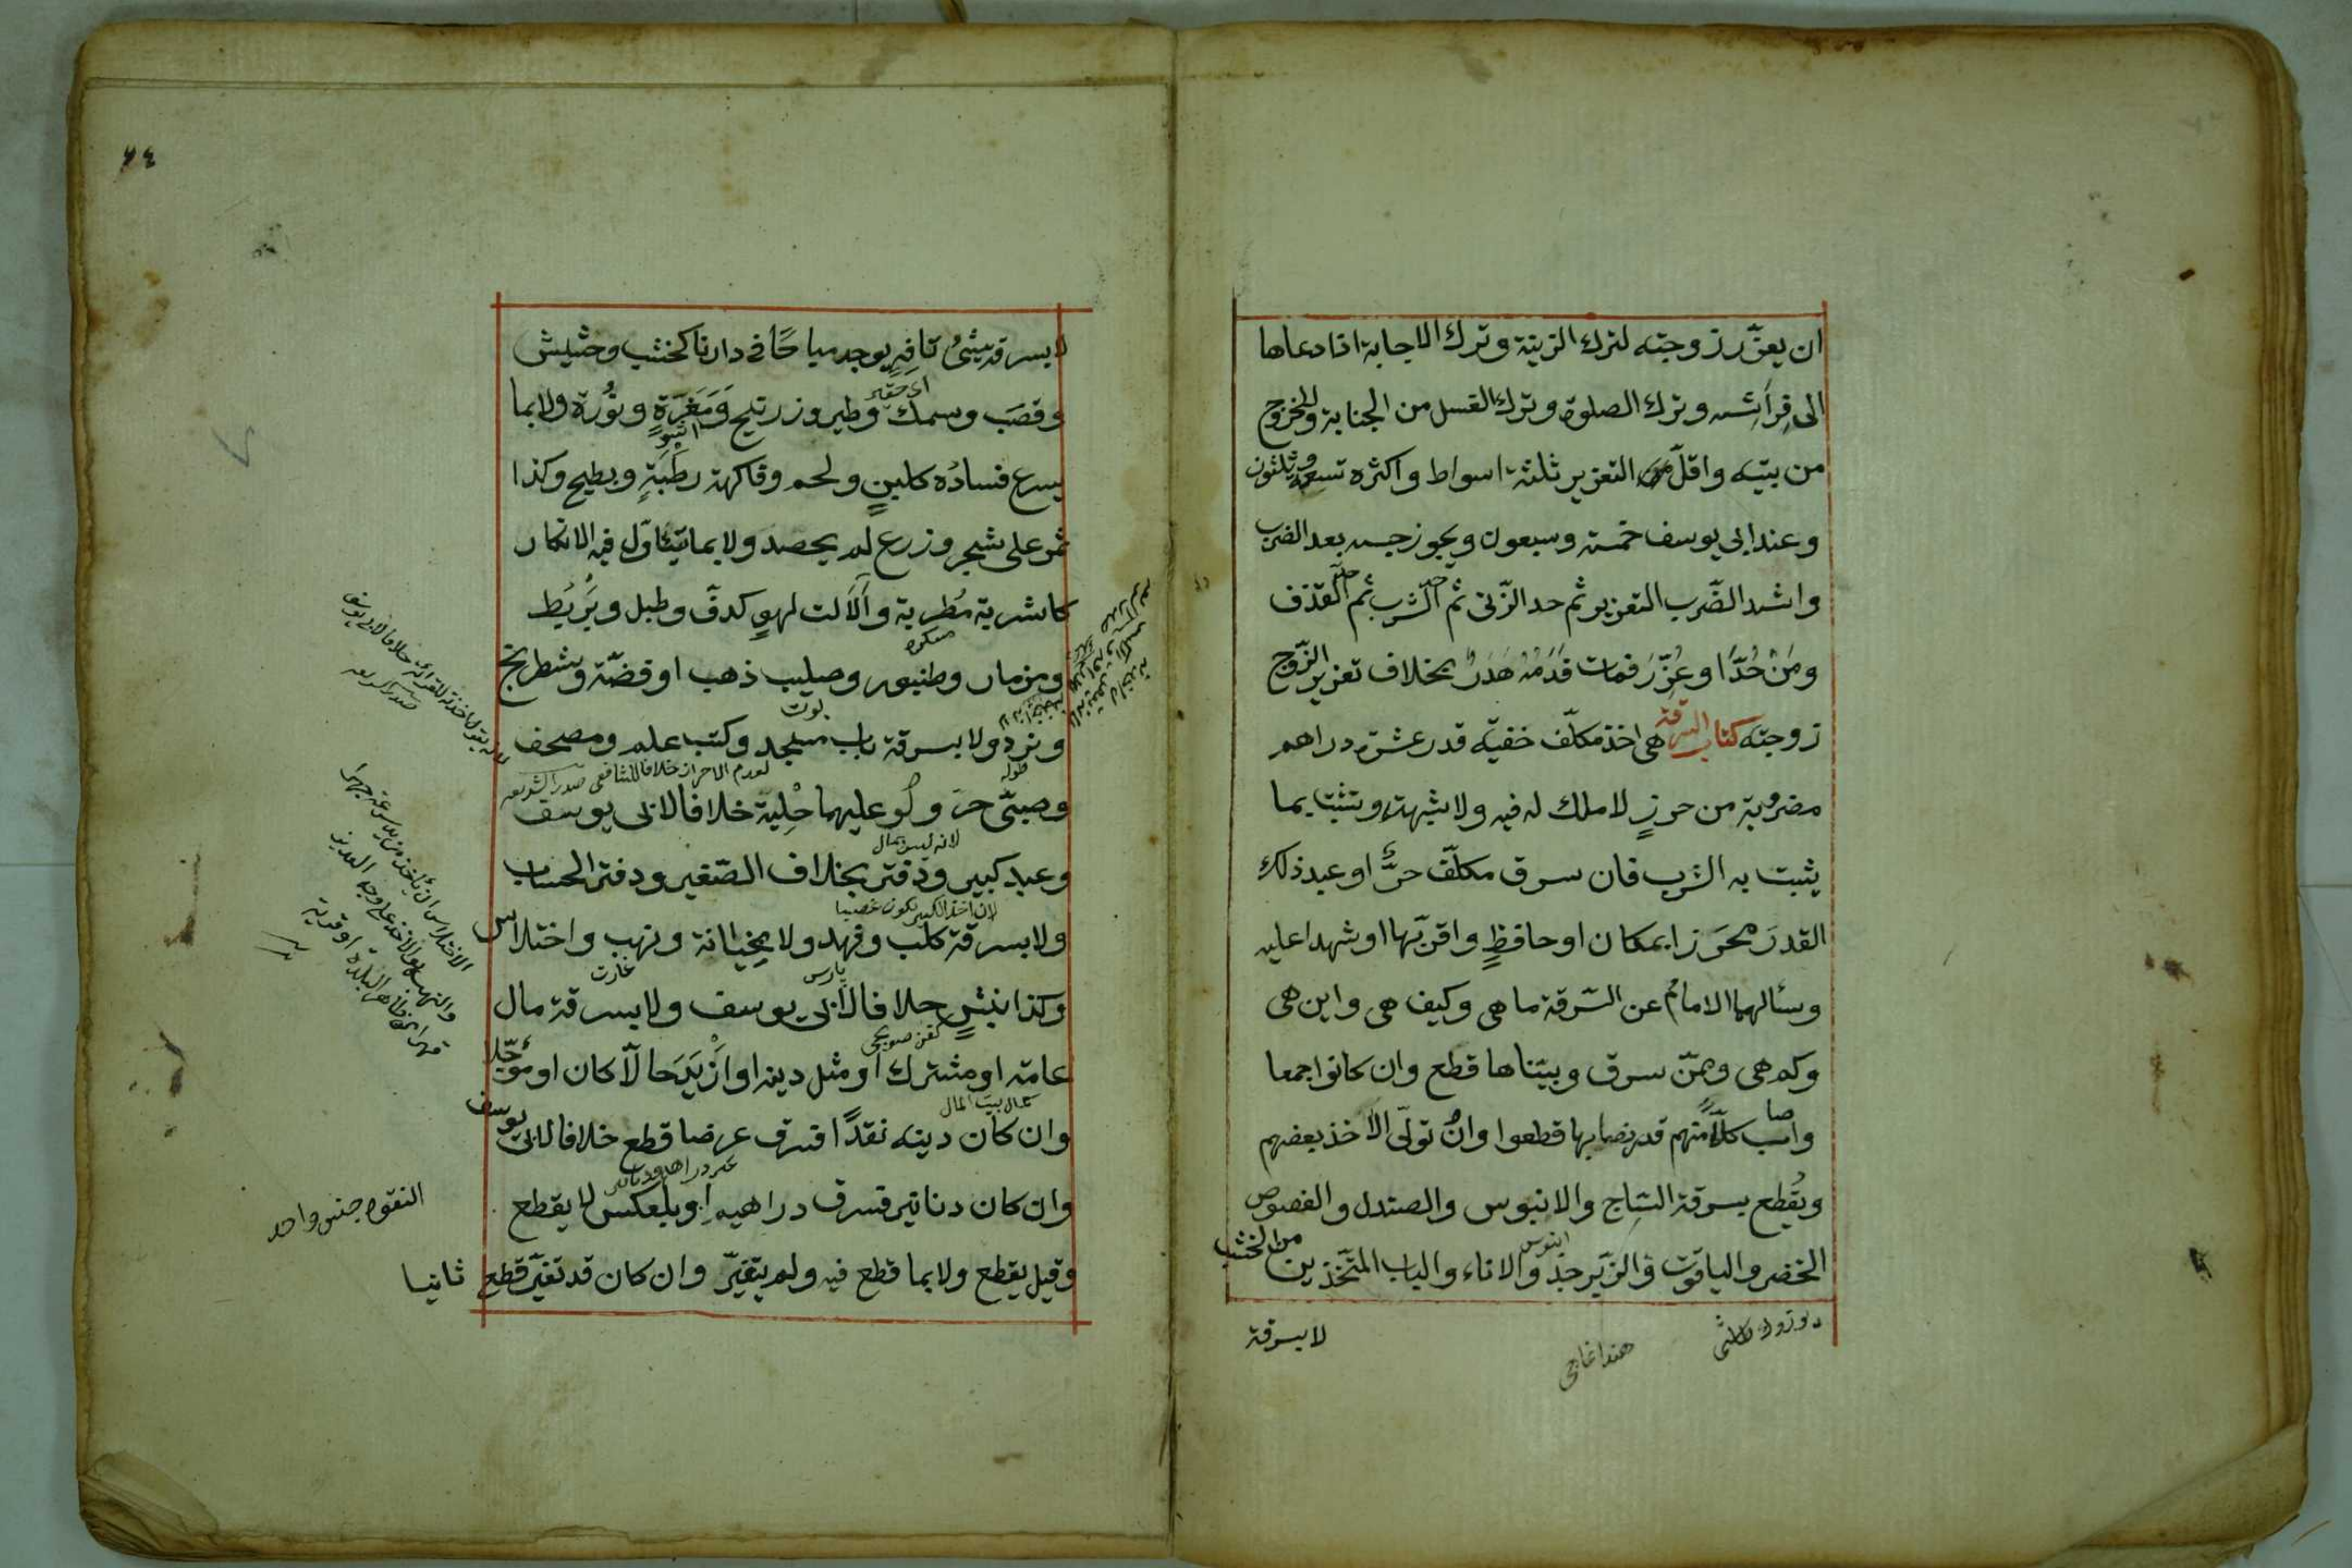 ان يعزّر زوجته لترك الزينة وترك الاجابة اذا دعاها
الى فِرَاشه وترك الصلوة وترك الغسل من الجنابة والخروج
من بيته واقلّ التعزير ثلثة اسواط واكثره تسعة وثلثون
وعند ابى يوسف خمسة وسبعون ويجوز حبسه بعد الضرب
واشد الضّرب التعزير ثم حد الزّنى ثم حد الشّرب ثم حد القذف
ومَنْ حُدَّ او عُزِّرَ فمات فَدَمُهُ هَدَرٌ بخلاف تعزير الزّوج
زوجته كتاب السرقة هى اخذ مكلّف خفيّة قدر عشرة دراهم
مضروبة من حرزٍ لا ملك له فيه ولا شبهة وتثبت بما
يثبت به الشرب فان سرق مكلّف حرٌّ او عبد ذلك
القدرَ محرَزا بمكان او حافظٍ واقرّ بها او شهدا عليه
وسألهما الامامُ عن السّرقة ما هى وكيف هى واين هى
وكم هى وممّن سرق وبيّناها قطع وان كانوا جمعا
واصاب كلّاً منهم قدر نصابها قطعوا وان تولّى الاخذ بعضهم
ويُقطع بسرقة السّاج والابنوس والصندل والفصوص
الخضر والياقوت والزّبرجد والاناء والباب المتّخذين من الخشب
ابنوس
لا بسرقة
٦٤
لا بسرقة شئٍ تافِهٍ يوجد مباحًا فى دارنا كخشب وحشيش
اى حقير
وقصَب وسمك وطير وزرنيخ وَمَغَرَةٍ ونُورة ولا بما
يسرع فسادُه كلبنٍ ولحم وفاكهة رطَبَةٍ وبطيخ وكذا
ثمر على شجر وزرع لم يحصد ولا بما يتأوّل فيه الانكار
كاشربة مُطربة وآلات لهوٍ كدفّ وطبل وبَرْبَط
ومزمار وطنبور وصليب ذهب او فضّة وشطرنج
ونرد ولا بسرقة باب مسجد وكتب علم ومصحف
لعدم الاحراز خلافا للشافعى صدر الشريعه
وصبىّ حرّ ولو عليهما حِلية خلافا لابى يوسف
لانه ليس بمال
وعبد كبير ودفتر بخلاف الصّغير ودفتر الحساب
لان اخذ الكبير يكون غصبا
ولا بسرقة كلب وفهد ولا بخيانة ونهب واختلاس
پارس
غارت
وكذا نبشٍ خلافا لابى يوسف ولا بسرقة مال
كفن صويجى
عامّة او مشترك او مثل دينه او ازْيَدَ حالّا كان او مؤجّلا
كمال بيت المال
وان كان دينه نقدًا فسرق عرضا قطع خلافا لابى يوسف
وان كان دنانير فسرق دراهم او بالعكس لا يقطع
وقيل يقطع ولا بما قطع فيه ولم يتغيّر وان كان قد تغيّر قطع ثانيا
النقود جنس واحد